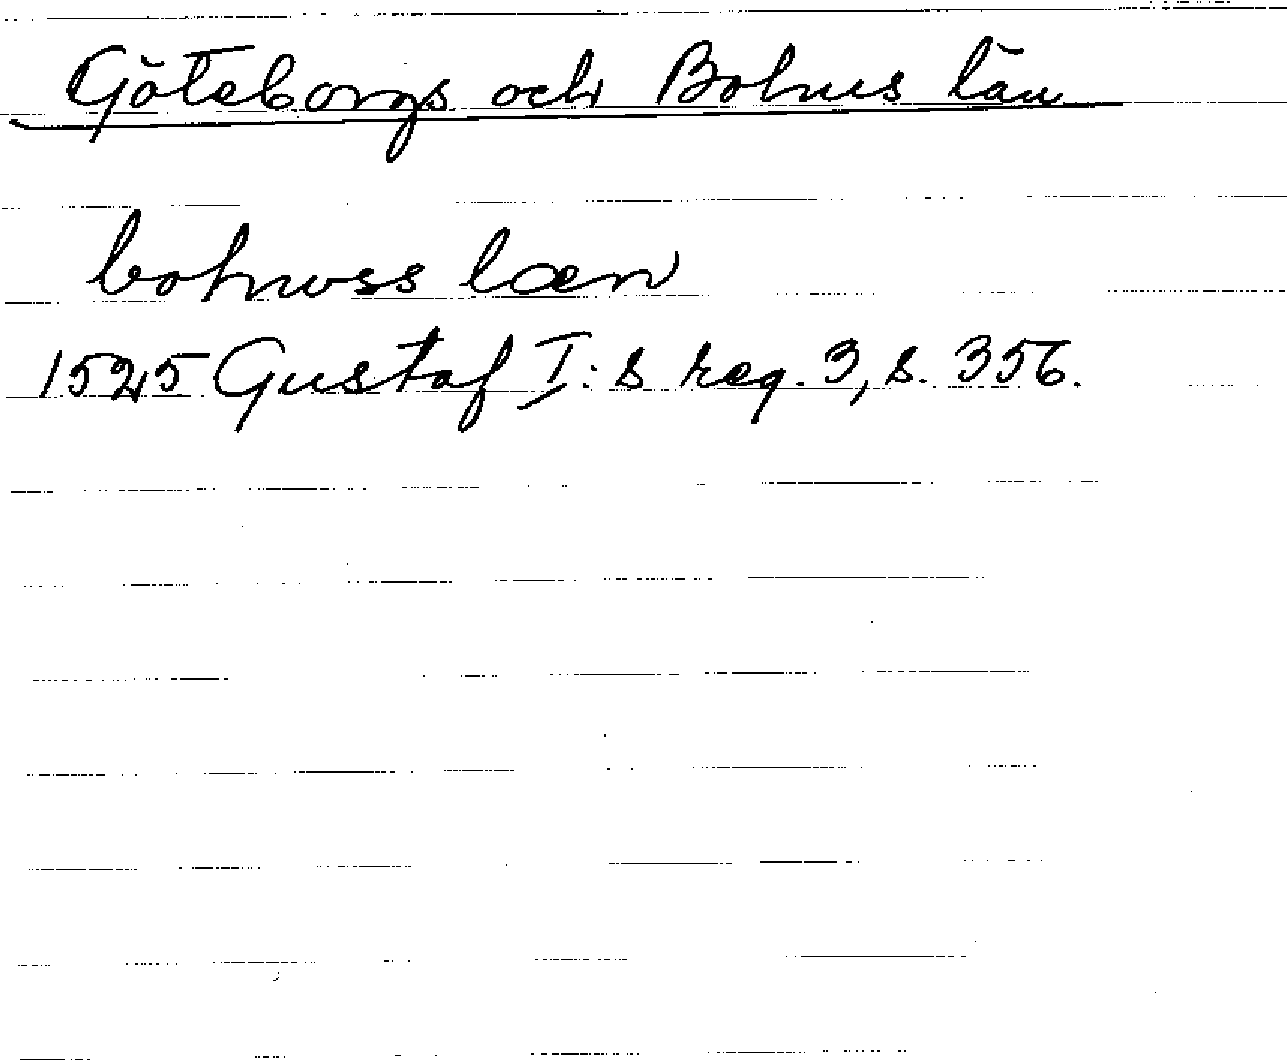 Göteborgs och Bohus län
bohwss læn
1525 Gustaf I:s reg. 3, s. 356.